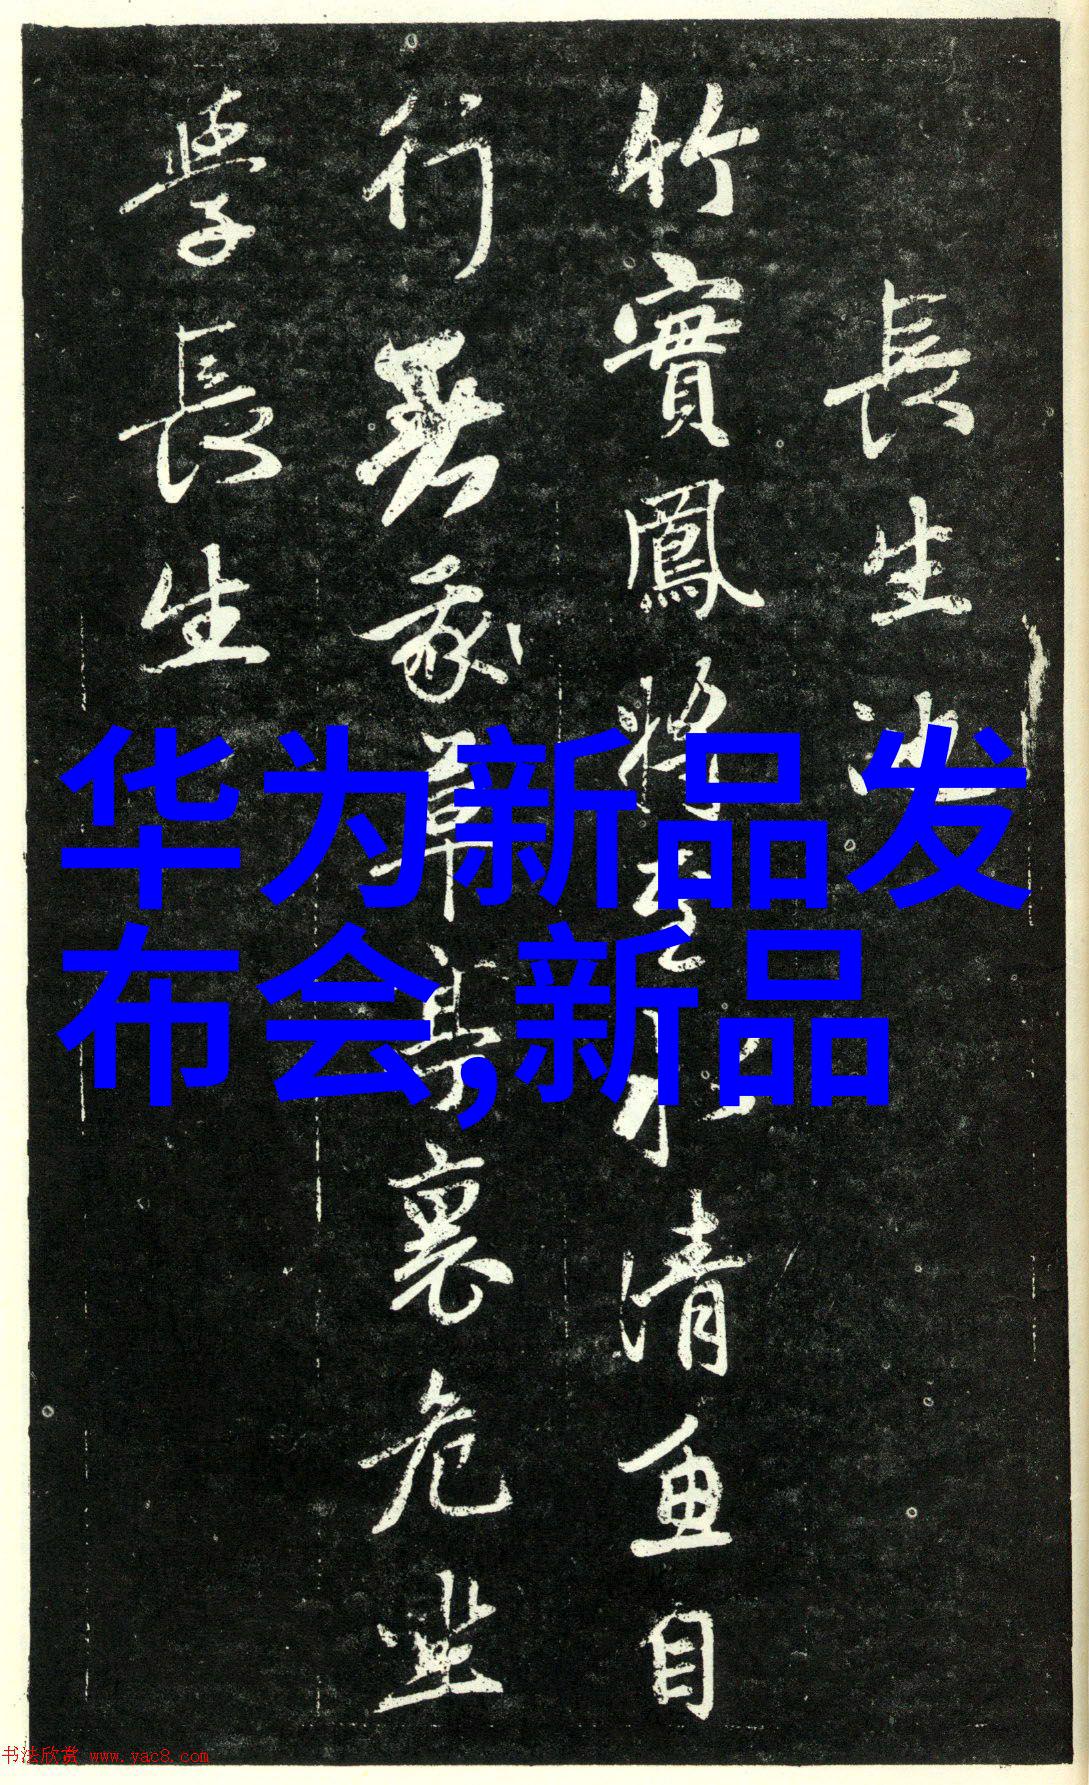 長生池
竹實鳳將至水清魚自
行草亭裏危坐
學長生
华为新品发
布会,新品
书法欣赏 www.yac8.com